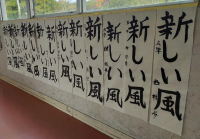 新しい風
新しい風
新しい風
新しい風
新しい風
新しい風
新しい風
新しい風
新しい風
新しい風